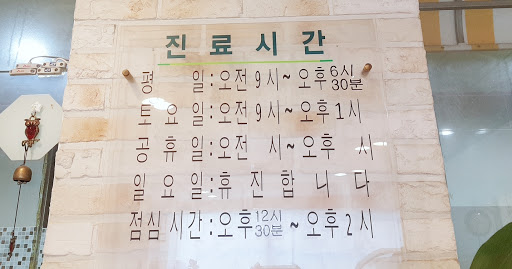 진료시간
평 일:오전9시~오후6시30분
토요일:오전9시~오후1시
공휴일:오전 시~오후 시
일요일:휴진합니다
점심시간:오후12시30분~오후2시